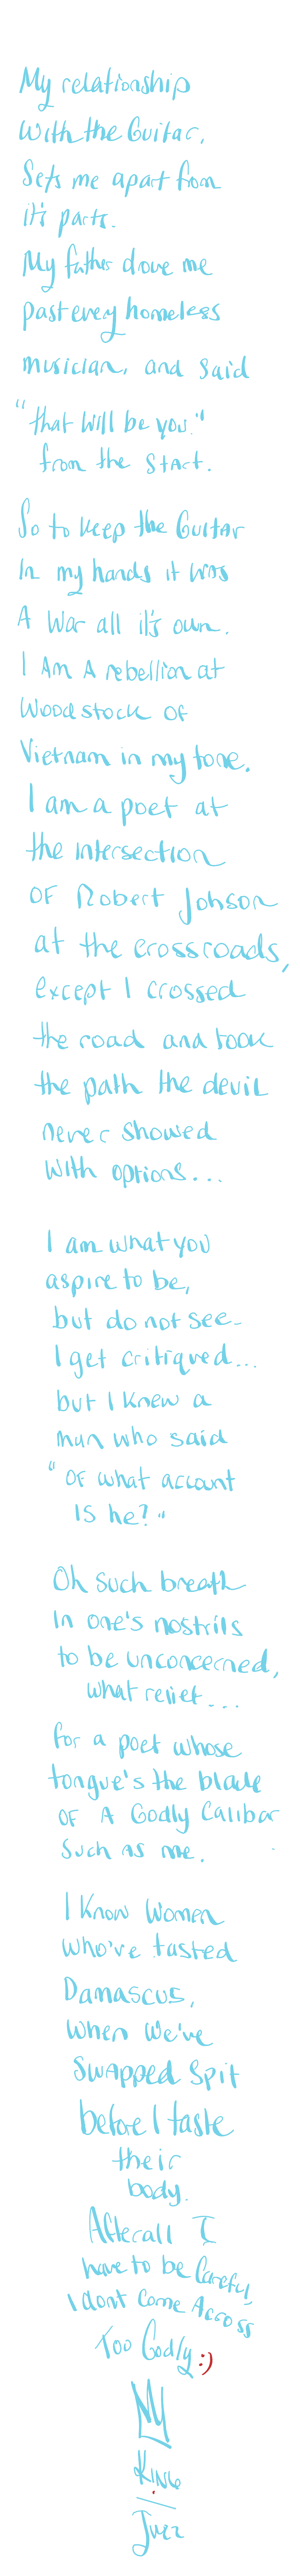 My relationship
with the Guitar,
Sets me apart from
it's parts.
My father drove me
past every homeless
musician, and said
"that will be you."
from the start.
So to keep the Guitar
In my hands it was
A War all it's own.
I Am A rebellion at
Woodstock of
Vietnam in my tone.
I am a poet at
the intersection
OF Robert Johson
at the crossroads,
except I crossed
the road and took
the path the devil
never showed
with options...
I am what you
aspire to be,
but do not see-
I get critiqued...
but I knew a
man who said
"OF what account
IS he?"
Oh such breath
In one's nostrils
to be unconcerned,
what relief...
for a poet whose
tongue's the blade
OF A Godly Calibar
Such as me.
I Know Women
who've tasted
Damascus,
When We've
Swapped Spit
before I taste
their
body.
After all I
have to be Careful,
I dont Come Across
Too Godly :)
King
Juez